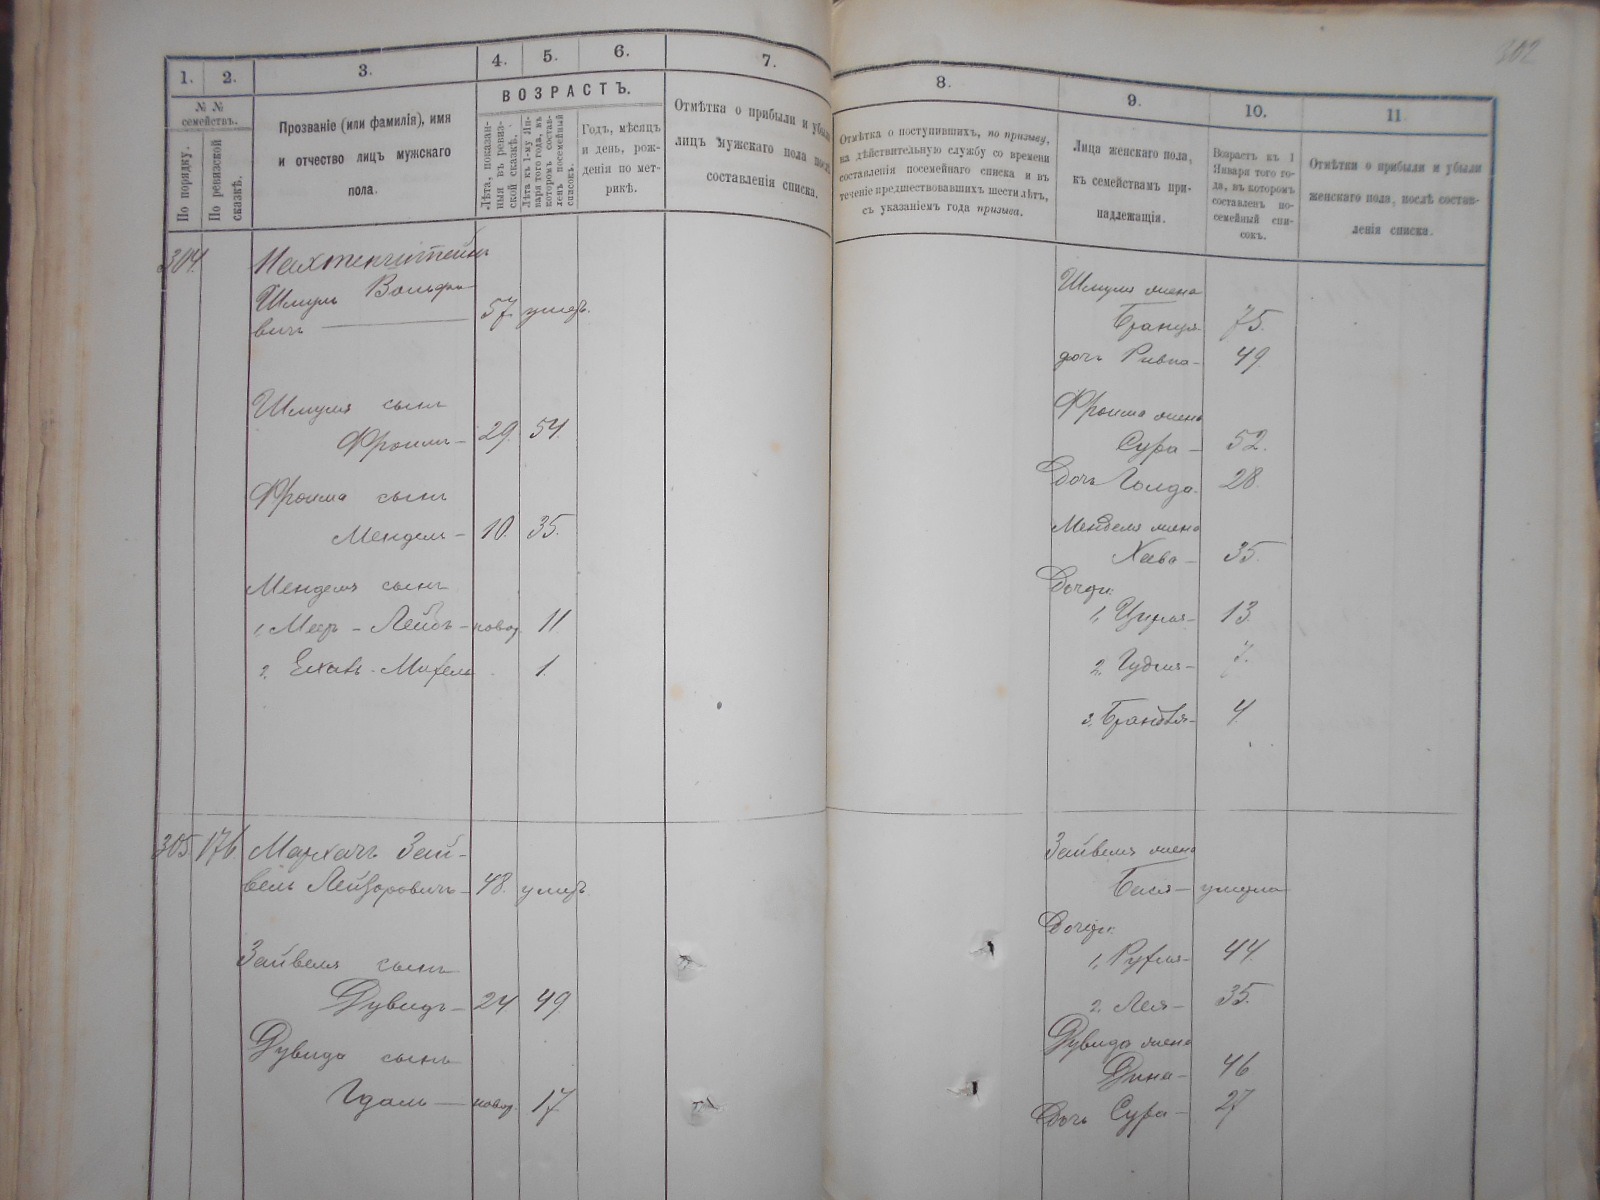 302
1.
2.
3.
4.
5.
6.
7.
№ №
семействъ.
По порядку.
По ревизской
сказкѣ.
Прозваніе (или фамилія), имя
и отчество лицъ мужскаго
пола.
ВОЗРАСТЪ.
Лѣта, показан-
ныя въ ревиз-
ской сказкѣ.
Лѣта къ 1-му Ян-
варя того года, въ
которомъ состав-
ленъ посемейный
списокъ.
Годъ, мѣсяцъ
и день, рож-
денія по мет-
рикѣ.
Отмѣтка о прибыли и убыли
лицъ мужскаго пола послѣ
составленія списка.
8.
9.
10.
11
Отмѣтка о поступившихъ, по призыву,
на дѣйствительную службу со времени
составленія посемейнаго списка и въ
теченіе предшествовавшихъ шести лѣтъ,
съ указаніемъ года призыва.
Лица женскаго пола,
къ семействамъ при-
надлежащія.
Возрастъ къ 1
Января того го-
да, въ которомъ
составленъ по-
семейный спи-
сокъ.
Отмѣтки о прибыли и убыли
женскаго пола, послѣ состав-
ленія списка.
304.
Шмуль Вольфо-
вичъ 57. умеръ.
Шмуля сынъ
Фроимъ – 29. 54.
Фроима сынъ
Мендель – 10. 35.
Менделя сынъ
1, Меер – Лейбъ – новор. 11.
2, Михель 1.
Шмуля жена
75.
дочь Ривка – 49.
Фроима жена
Сура – 52.
Дочь Голда. 28.
Менделя жена
Хава – 35.
Дочери:
1, 13.
2, 7.
3, 4.
305. 176. Зай-
вель Лейзоровичъ – 48. умеръ.
Зайвеля сынъ
Дувидъ – 24 49.
Дувида сынъ
Гдаль – новор. 17
Зайвеля жена
умерла
Дочери:
1, Рухля – 44
2, Лея – 35.
Дувида жена
Дина – 46
Дочь Сура – 27